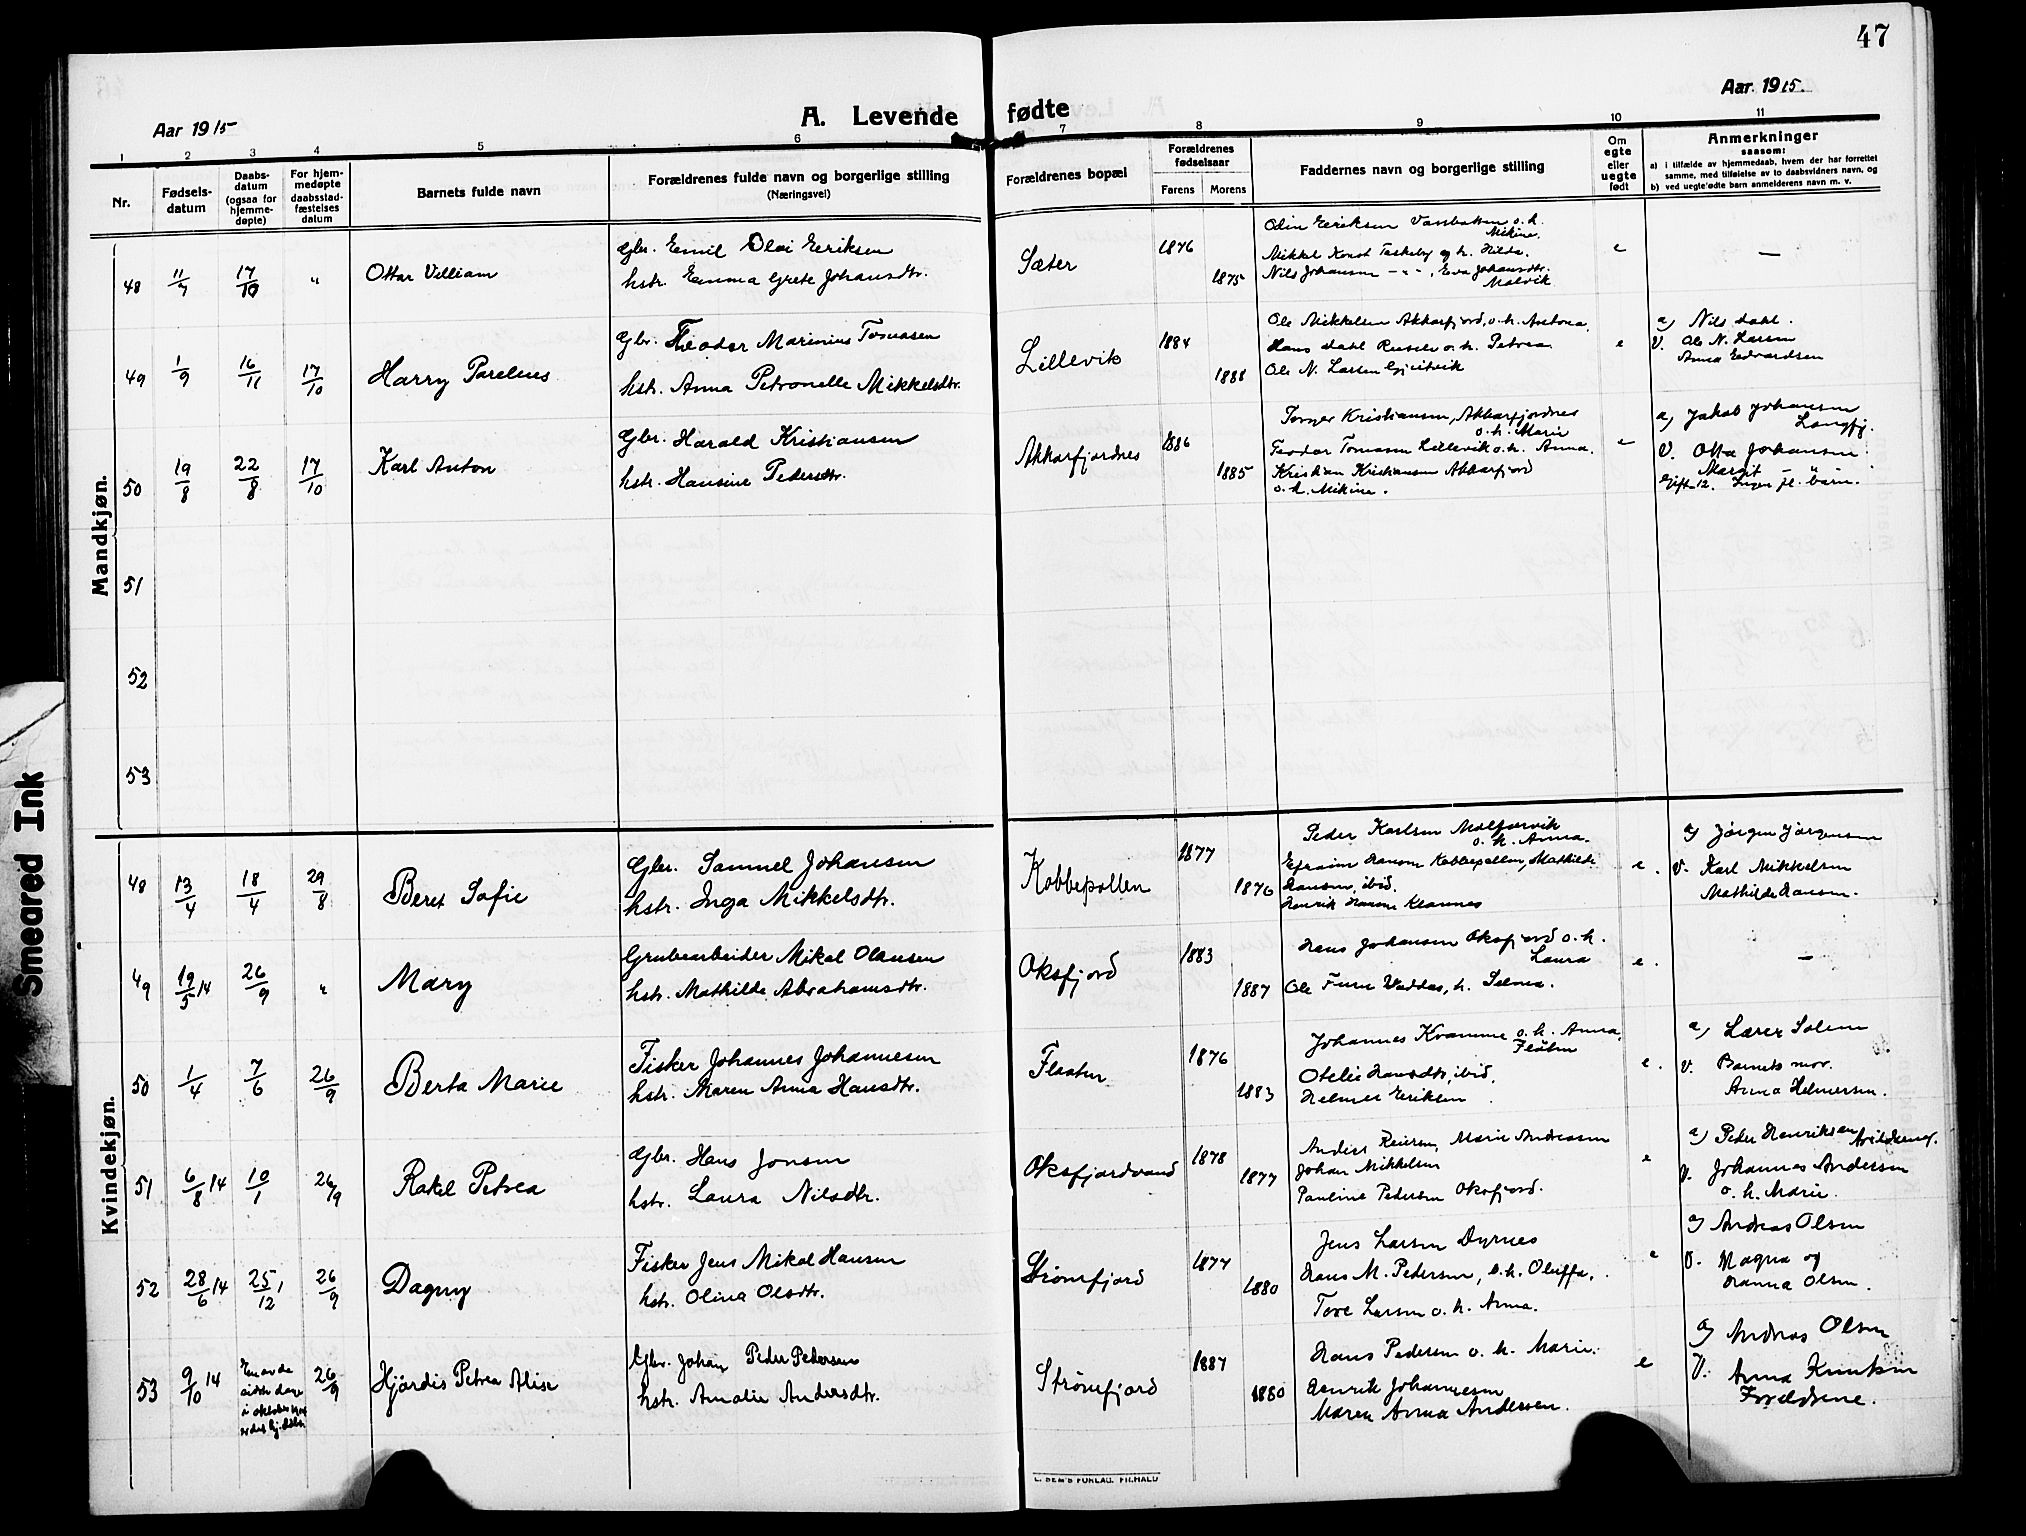 47
Aar 1915
A. Levende fødte
Aar 1915.
1 2 3 4 5 6 7 8 9 10 11
Nr.
Fødsels-
datum
Daabs-
datum
(ogsaa for
hjemme-
døpte)
For hjem-
medøpte
daabsstad-
fæstelses
datum
Barnets fulde navn
Forældrenes fulde navn og borgerlige stilling
(Næringsvei)
Forældrenes bopæl
Forældrenes
fødselsaar
Farens Morens
Faddernes navn og borgerlige stilling
Om
egte
eller
uegte
født
Anmerkninger
saasom:
a) i tilfælde av hjemmedaab, hvem der har forrettet
samme, med tilføielse av to daabsvidners navn, og
b) ved uegte fødte barn anmelderens navn m. v.
Mandkjøn.
48 11/7 17/10 " Ottar Villiam
Gbr. Emil Olai Eeriksen
hstr. Emma Grete Johansdtr.
Sæter 1876 1875
Odin Eeriksen o. h.
Mikine.
Mikkel og h. Hilda.
Nils Johansen - " - , Eva Johansdtr.
Malvik
e —
49 1/9 16/11 17/10 Harry Parelius
Gbr. Theodor Marinius Tomasen
hstr. Anna Petronelle Mikkelsdtr.
Lillevik 1884 1888
Ole Mikkelsen Akkarfjord, o. h. Antona,
Hans Dahl o. h. Petrea
Ole N. Larsen
e
a) Nils Dahl.
V. Ole N. Larsen
Anna Edvardsen
50 19/8 22/8 17/10 Karl Anton
Gbr. Harald Kristiansen
hstr. Hansine Pedersdtr.
Akkarfjordnes 1886 1885
Kristiansen, Akkarfjordnes
o. h. Marie
Teodor Tomasen Lillevik o. h. Anna.
Kristian Kristiansen Akkarfjord
o. h. Mikine.
e
a) Jakob Johansen
Langfj.
V. Otta Johansen
Margit
Gift 12. Ingen fl. børn.
51
52
53
Kvindekjøn.
48 13/4 18/4 29/8 Beret Sofie
Gbr. Samuel Johansen
hstr. Inga Mikkelsdtr.
Kobbepollen 1877 1876
Peder Karlsen
o. h. Anna.
Efraim Hansen Kobbepollen, Mathilde
Hansen, ibid.
Henrik Hansen
e.
a) Jørgen Jørgensen
V. Karl Mikkelsen
Mathilde Hansen.
49 19/5 14 26/9 " Mary
Grubearbeider Mikal Olausen
hstr. Mathilde Abrahamsdtr.
Oksfjord 1883 1887
Hans Johansen Oksfjord o. h.
Laura
Ole Furu Vaddas, h. Selma.
e. —
50 1/4 7/6 26/9 Berta Marie
Fisker Johannes Johannesen
hstr. Maren Anna Hansdtr.
Flaaten 1876 1883
Johannes Kramme o. h. Anna,
Flåten
Otelie Hansdtr, ibid,
Helmer Eeriksen
e.
a) Lærer Solem
V. Barnets mor.
Anna Helmersen.
51 6/8 14 10/1 26/9 Rakel Petrea
Gbr. Hans Jonsen
hstr. Laura Nilsdtr.
Oksfjordvand 1878 1877
Anders Reiersen, Marie Andreasen
Johan Mikkelsen
Pauline Pedersen Oksfjord.
e
a) Peder Henriksen
V. Johannes Andersen
o. h. Marie.
52 28/6 14 25/12 1 26/9 Dagny
Fisker Jens Mikal Hansen
hstr. Olina Olsdtr.
Strømfjord 1877 1880
Jens Larsen Dyrnes
Hans M. Pedersen, o. h. Oluffa,
Tore Larsen o. h. Anna.
e
a) Andreas Olsen
V. Magna og
Hanna Olsen.
53 9/10 14 En av de
sidste dage
i oktober 1914
26/9 Hjördis Petrea Alise
Gbr. Johan Peder Pedersen
hstr. Amalie Andersdtr.
Strømfjord 1887 1880
Hans Pedersen o. h. Marie.
Henrik Johannesen
Maren Anna Andersen.
e
a) Andreas Olsen
V. Anna
Forældrene.
Smeared Ink
E. SEM'S FORLAG. FR.HALD